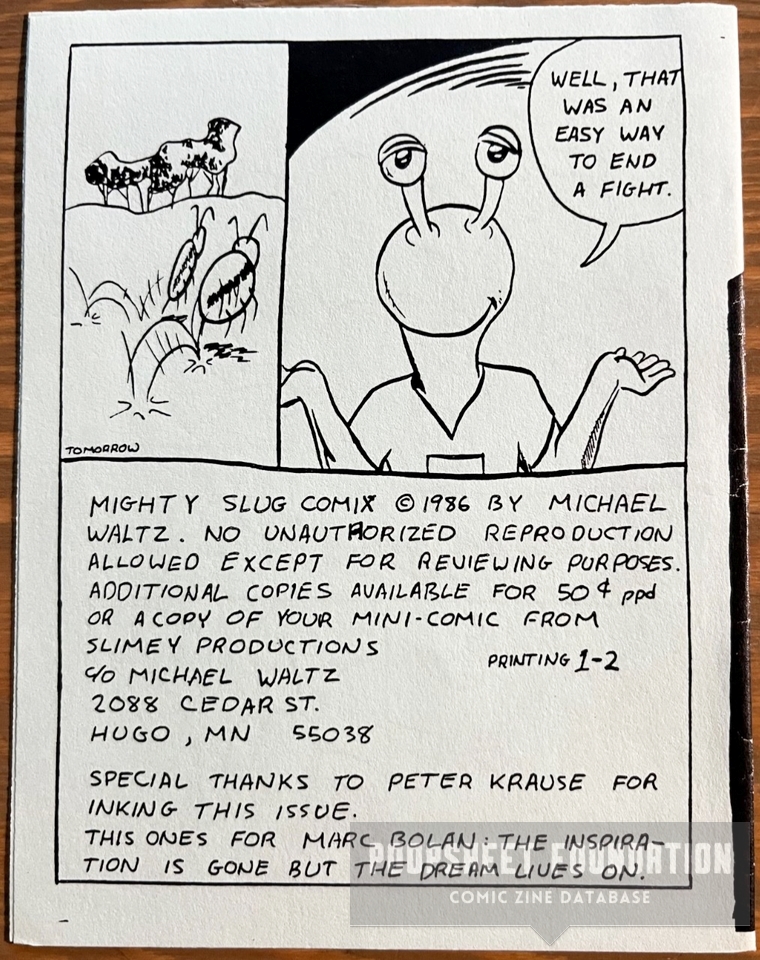 WELL, THAT
WAS AN
EASY WAY
TO END
A FIGHT.
TOMORROW
MIGHTY SLUG COMIX © 1986 BY MICHAEL
WALTZ. NO UNAUTHORIZED REPRODUCTION
ALLOWED EXCEPT FOR REVIEWING PURPOSES.
ADDITIONAL COPIES AVAILABLE FOR 50¢ ppd
OR A COPY OF YOUR MINI-COMIC FROM
SLIMEY PRODUCTIONS
C/O MICHAEL WALTZ
PRINTING 1-2
2088 CEDAR ST.
HUGO, MN 55038
SPECIAL THANKS TO PETER KRAUSE FOR
INKING THIS ISSUE.
THIS ONES FOR MARC BOLAN: THE INSPIRA-
TION IS GONE BUT THE DREAM LIVES ON.
POOPSHEET FOUNDATION
COMIC ZINE DATABASE